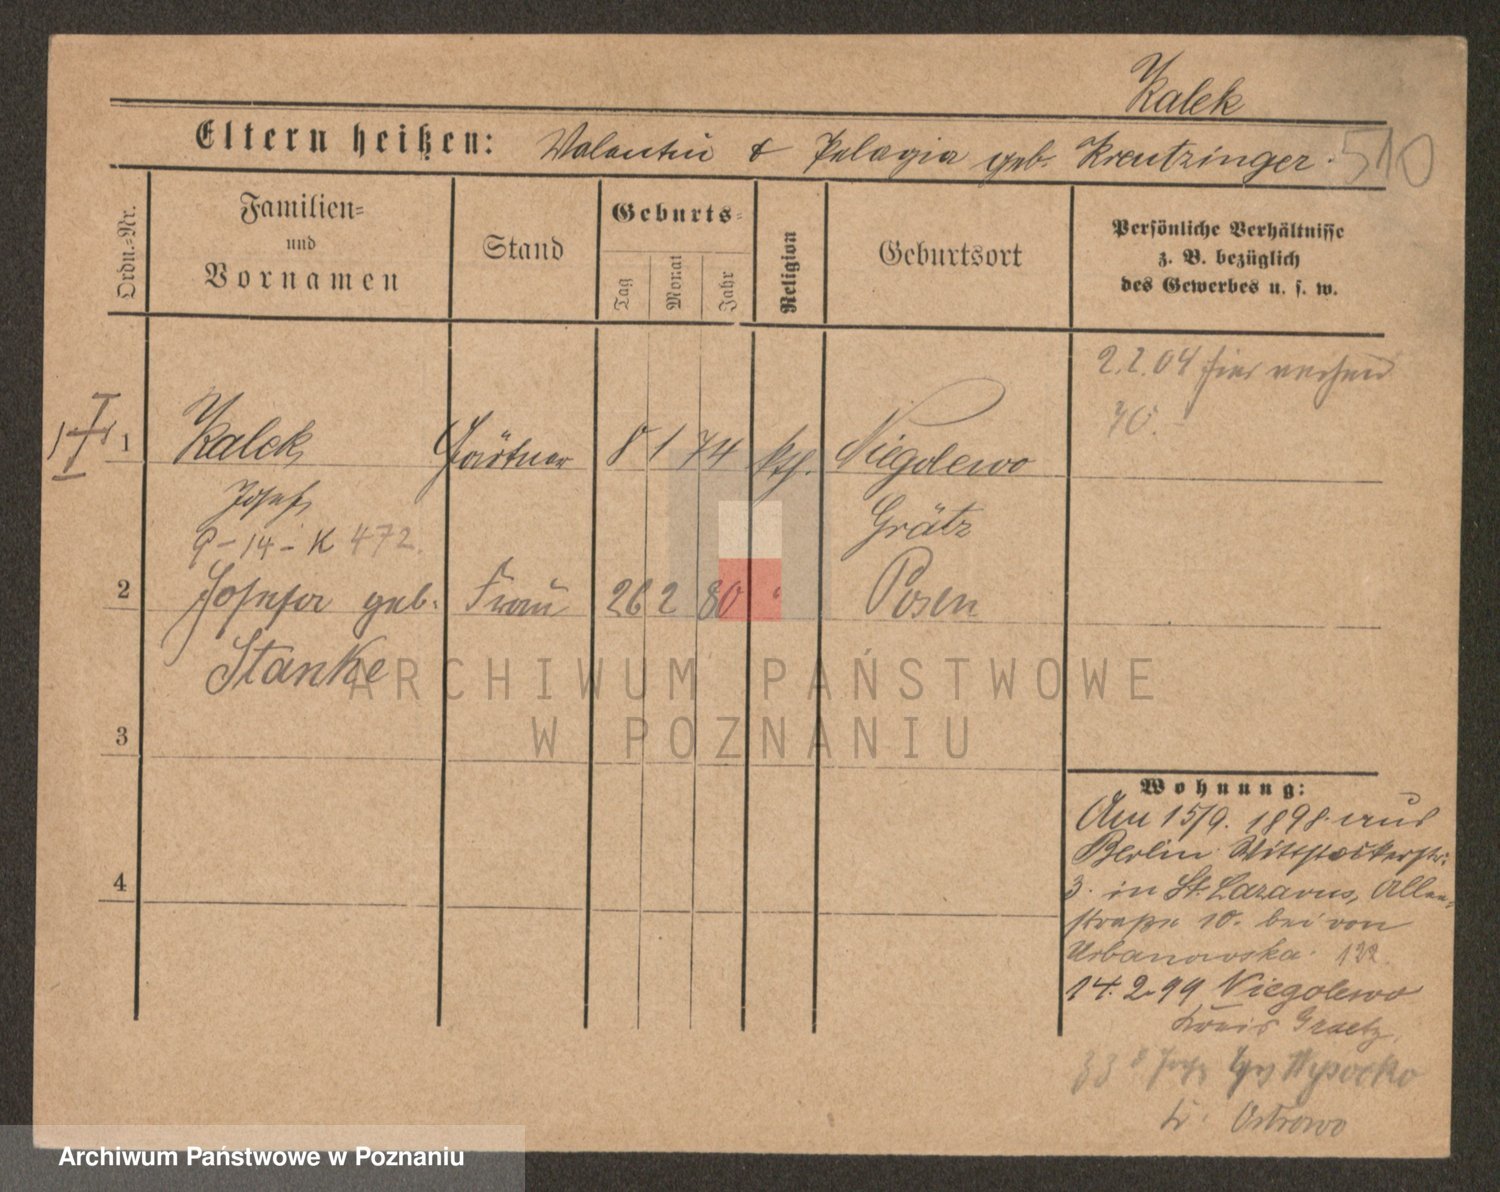 Kalek
510
Eltern heißen: Valentin & Pelagia geb. Kreutzinger.
Ordn.-Nr.
Familien-
und
Vornamen
Stand
Geburts-
Tag
Monat
Jahr
Religion
Geburtsort
Persönliche Verhältnisse
z. B. bezüglich
des Gewerbes u. s. w.
2.2.04 hier
1 Kalek, Gärtner 8 1 74 kth. Niegolewo
Josef,
Grätz
9-14-K 472.
2 Josefa geb. Frau 26 2 80 " Posen
Stanke
3
4
Wohnung:
Am 15/9. 1898. aus
Berlin Wittstockerstr.
3. in St. Lazarus, Allee-
straße 10. bei von
Urbanowska. 122.
14.2.99 Niegolewo
Kreis Graetz,
Wysocko
Kr. Ostrowo
ARCHIWUM PAŃSTWOWE
W POZNANIU
Archiwum Państwowe w Poznaniu